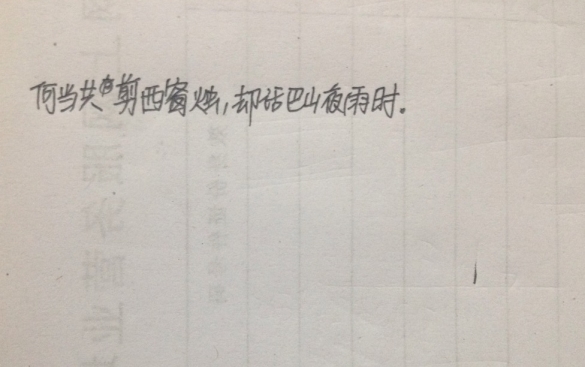 何当共剪西窗烛，却话巴山夜雨时。